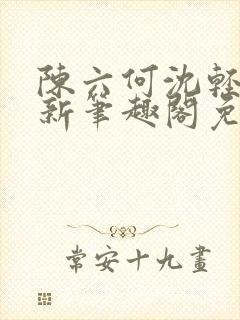 陳六何沈輕
新筆趣閣免
常安十九畫